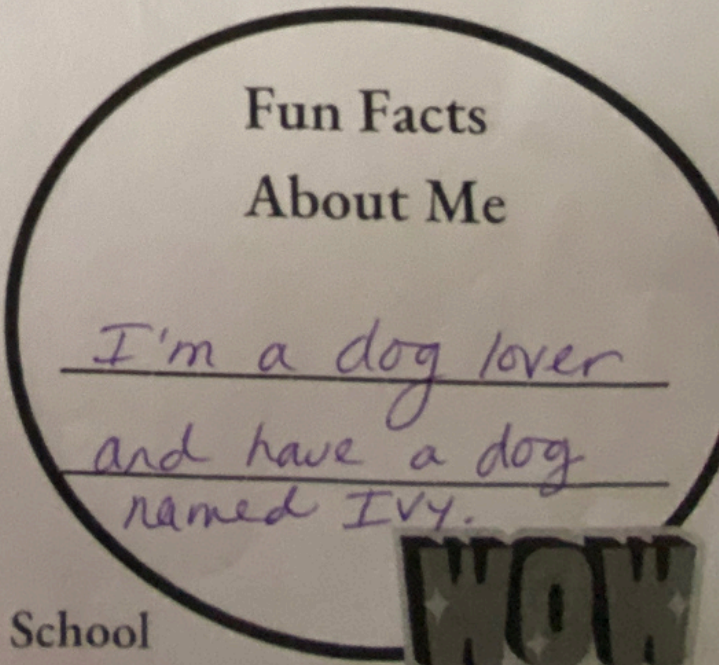 Fun Facts
About Me
I'm a dog lover
and have a dog
named Ivy.
WOW
School